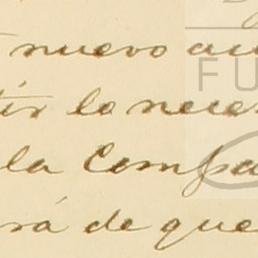 nuevo au
tir lo nece
la Compa
rá de que